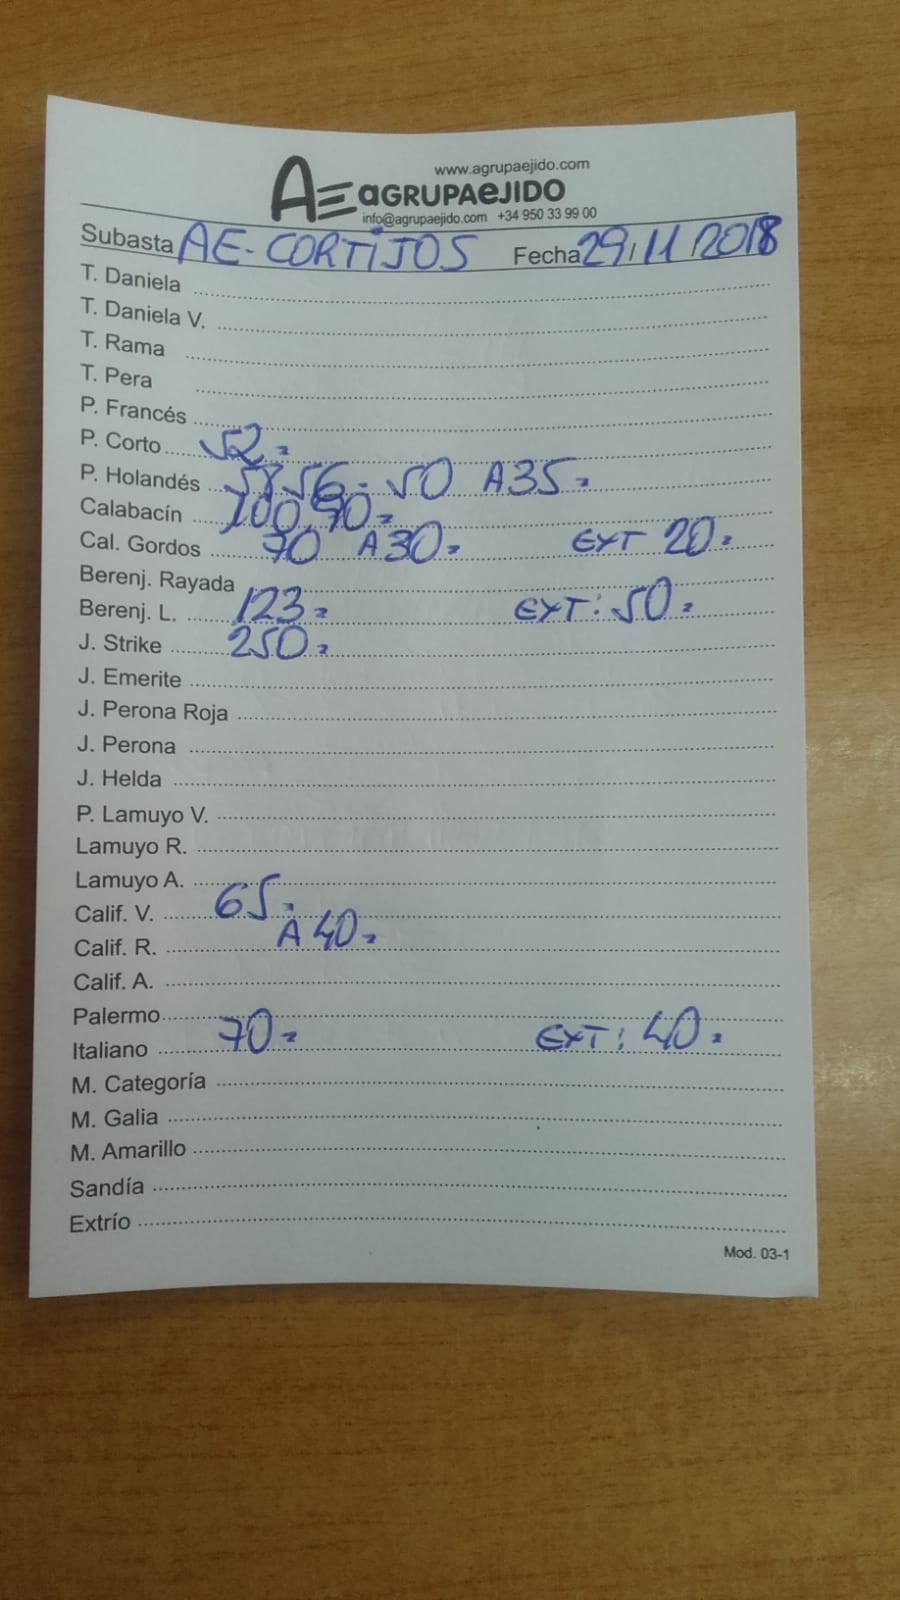 www.agrupaejido.com
AE aGRUPAeJIDO
info@agrupaejido.com +34 950 33 99 00
Subasta AE-CORTiJOS Fecha 29/11/2018
T. Daniela
T. Daniela V.
T. Rama
T. Pera
P. Francés
P. Corto 52=
P. Holandés 58.56- 50 A 35=
Calabacín 100,90=
Cal. Gordos 70 A 30= EXT 20=
Berenj. Rayada
Berenj. L. 123= EXT: 50=
J. Strike 250=
J. Emerite
J. Perona Roja
J. Perona
J. Helda
P. Lamuyo V.
Lamuyo R.
Lamuyo A.
Calif. V. 65=
A 40=
Calif. R.
Calif. A.
Palermo
Italiano 70= EXT: 40=
M. Categoría
M. Galia
M. Amarillo
Sandía
Extrío
Mod. 03-1